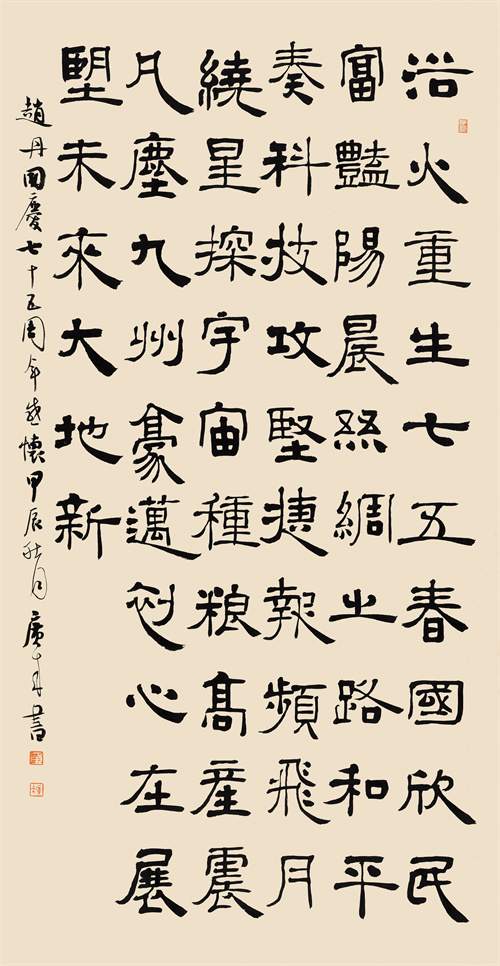 浴火重生七五春國欣民
富豔陽晨絲綢之路和平
奏科技攻堅捷報頻飛月
繞星探宇宙種粮高産震
凡塵九州豪邁初心在展
望未來大地新
趙丹國慶七十五周年感懷甲辰秋月廣書